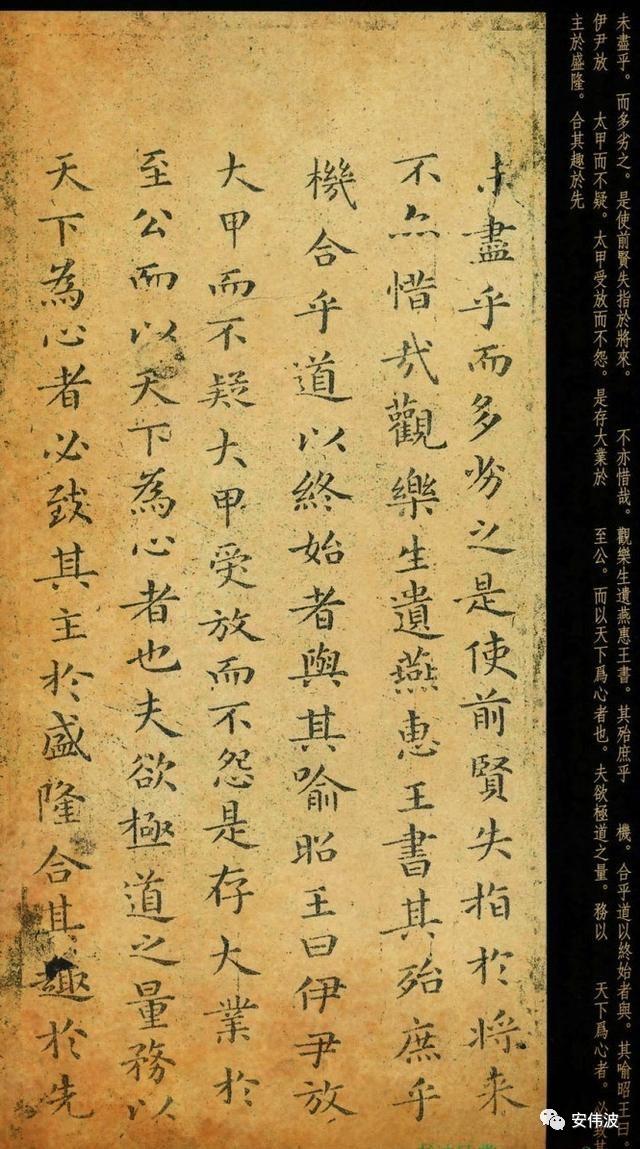 未盡乎。而多劣之。是使前賢失指於將來。 不亦惜哉。觀樂生遺燕惠王書。其殆庶乎 機。合乎道以終始者與。其喻昭王曰。
伊尹放 太甲而不疑。太甲受放而不怨。是存大業於 至公。而以天下爲心者也。夫欲極道之量。務以 天下爲心者。必致其
主於盛隆。合其趣於先
未盡乎而多劣之是使前賢失指於將来
不亦惜哉觀樂生遺燕惠王書其殆庶乎
機合乎道以終始者與其喻昭王曰伊尹放
大甲而不疑大甲受放而不怨是存大業於
至公而以天下為心者也夫欲極道之量務以
天下為心者必致其主於盛隆合其趣於先
安伟波